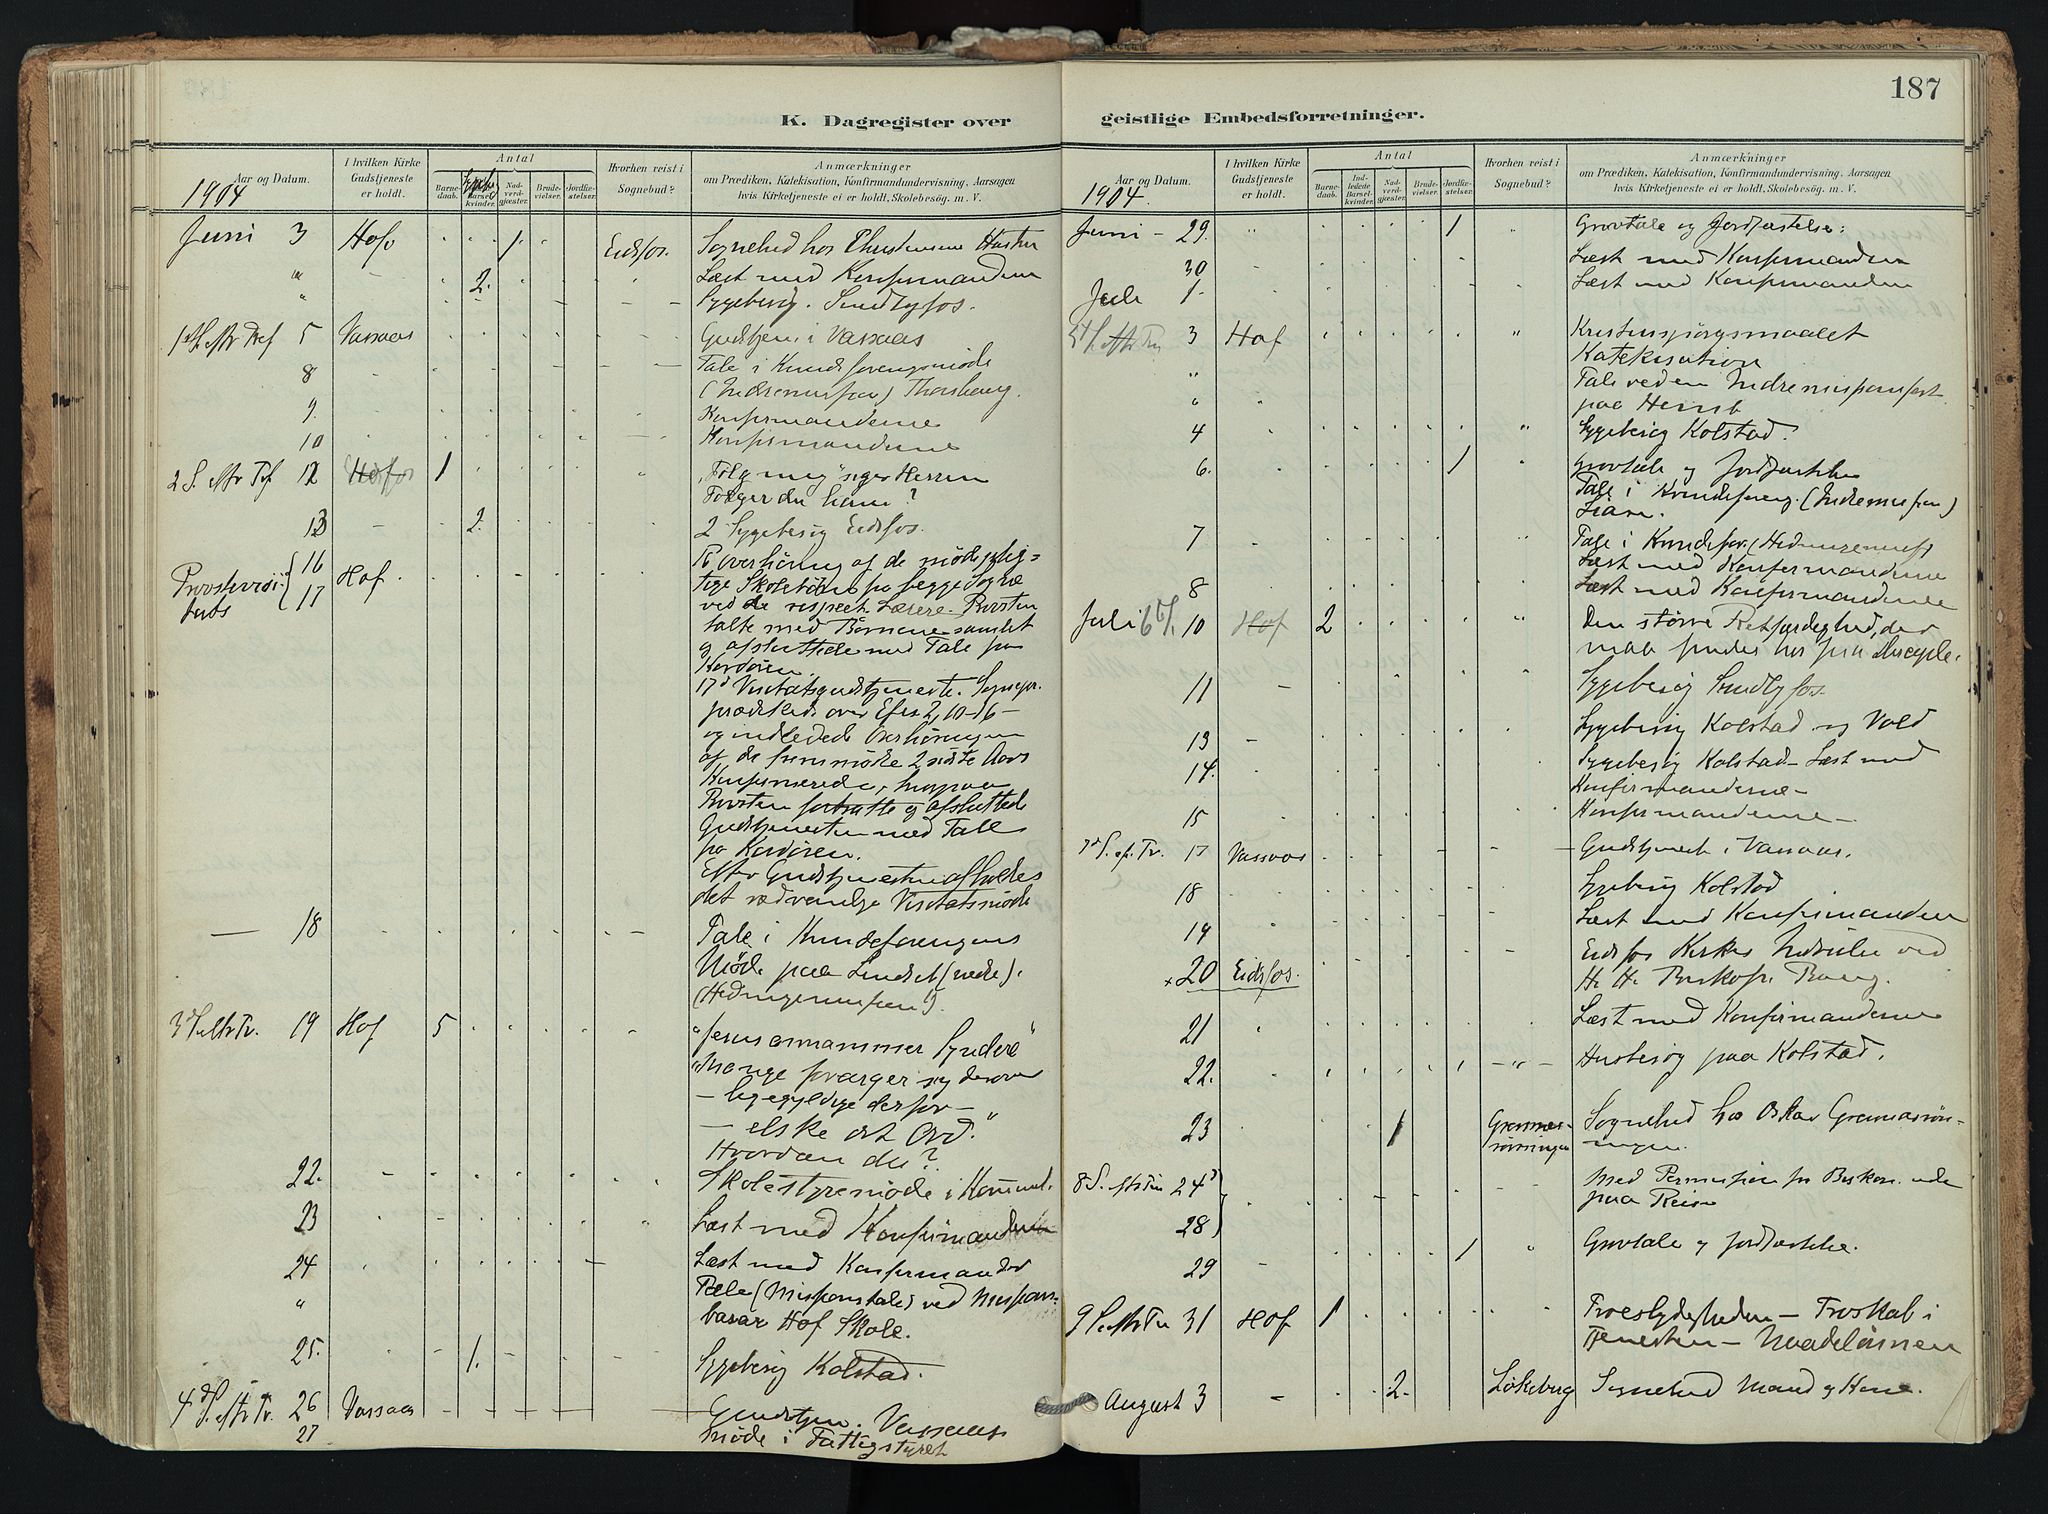 187
K. Dagregister over
geistlige Embedsforretninger.
Aar og Datum.
I hvilken Kirke Gudstjeneste er holdt.
Antal
Barnedaab.
Barselkvinder.
Nadverdgjæster.
Brudevielser.
Jordfæstelser.
Hvorhen reist i Sognebud?
Anmærkninger
om Prædiken, Katekisation, Konfirmandundervisning, Aarsagen
hvis Kirketjeneste ei er holdt, Skolebesøg. m. V.
1904
Juni 3 Hof 1 Eidsfos. Sognebud hos Christensens Hustru
" 2. Læst med Konfirmanderne
" Sygebesøg.
5 Vassaas Gudstjen. i Vassaas
8 Tale i Kvindeforeningsmøde
9. Konfirmanderne
10 Konfirmanderne
2 S. eftr Tref 12 1 "Følg mig" siger Herren
Følger du ham?
13 2. 2 Sygebesøg Eidsfos.
Provstevisi-
tats
16
17 Hof. Overhøring af de mødeplig-
tige Skolebørn fra begge Sogne
ved de respect. Lærere. Provsten
talte med Børnene samlet
og afsluttede med Tale fra
Kordøren.
17d Visitatsgudstjeneste. Sognepr.
prædikede over Efes 2, 10-16 -
og indledede Overhøringen
af de fremmødte 2 sidste Aars
Konfirmerede, hvorpaa
Provsten fortsatte og afsluttede
Gudstjenesten med Tale
fra Kordøren.
Efter Gudstjenesten afholdes
det sædvanlige Visitatsmøde
— 18 Tale i Kvindeforeningens
Møde paa
3d S. eftr Tr. 19 Hof 5 "Jesus annammer Syndere"
"Mange forarger sig derover
- ligegyldige derfor -
- elske det Ord."
Hvordan du?
22. Skolestyremøde i Kommunel.
23 Læst med Konfirmanderne
24 Læst med Konfirmander
" Tale (Missionstale) ved Missions-
basar Hof Skole.
25. 1. Sygebesøg Kolstad.
4d S. eftr Tr. 26 Vassaas Gudstjen. Vassaas
27 Møde i Fattigstyret
Aar og Datum.
I hvilken Kirke Gudstjeneste er holdt.
Antal
Barnedaab.
Indledede Barselkvinder.
Nadverdgjæster.
Brudevielser.
Jordfæstelser.
Hvorhen reist i Sognebud?
Anmærkninger
om Prædiken, Katekisation, Konfirmandundervisning, Aarsagen
hvis Kirketjeneste ei er holdt, Skolebesøg. m. V.
1904.
Juni - 29. 1 Gravtale og Jordfæstelse.
30 Læst med Konfirmanderne
Juli 1. Læst med Konfirmanderne
3 Hof Kristenspørgsmaalet
Katekisation
" Tale ved en Indremissionsfest
paa
4 Sygebesøg Kolstad.
6. 1 Gravtale og Jordfæstelse
Tale i Kvindeforening. (Indremission)
7 Tale i Kvindefor.
Læst med Konfirmanderne
8 Læst med Konfirmanderne
Juli 10 Hof 2 Den større Retfærdighed, der
maa findes hos
11 Sygebesøg
13 Sygebesøg Kolstad og Vold
14. Sygebesøg Kolstad - Læst med
Konfirmanderne -
15 Konfirmanderne -
7d S. ef. Tr. 17 Vassaas Gudstjenest i Vassaas.
18 Sygebesøg Kolstad
19 Læst med Konfirmanderne
× 20 Eidsfos. Eidsfos Kirkes Indvielse ved
Hr. Hr. Biskop Bang.
21 Læst med Konfirmanderne
22. Husbesøg paa Kolstad.
23 1 Sognebud hos Oskar
8 S. eftr Trin 24d
28 Med Permission fra Biskopen ude
paa Reise
29 1 Gravtale og Jordfæstelse.
9 S. eftr Tr. 31 Hof 1 Troeslydigheden - Troskab i
Tjenesten - Naadelønnen
August 3 2. Løkeberg Sognebud Mand og Kone.